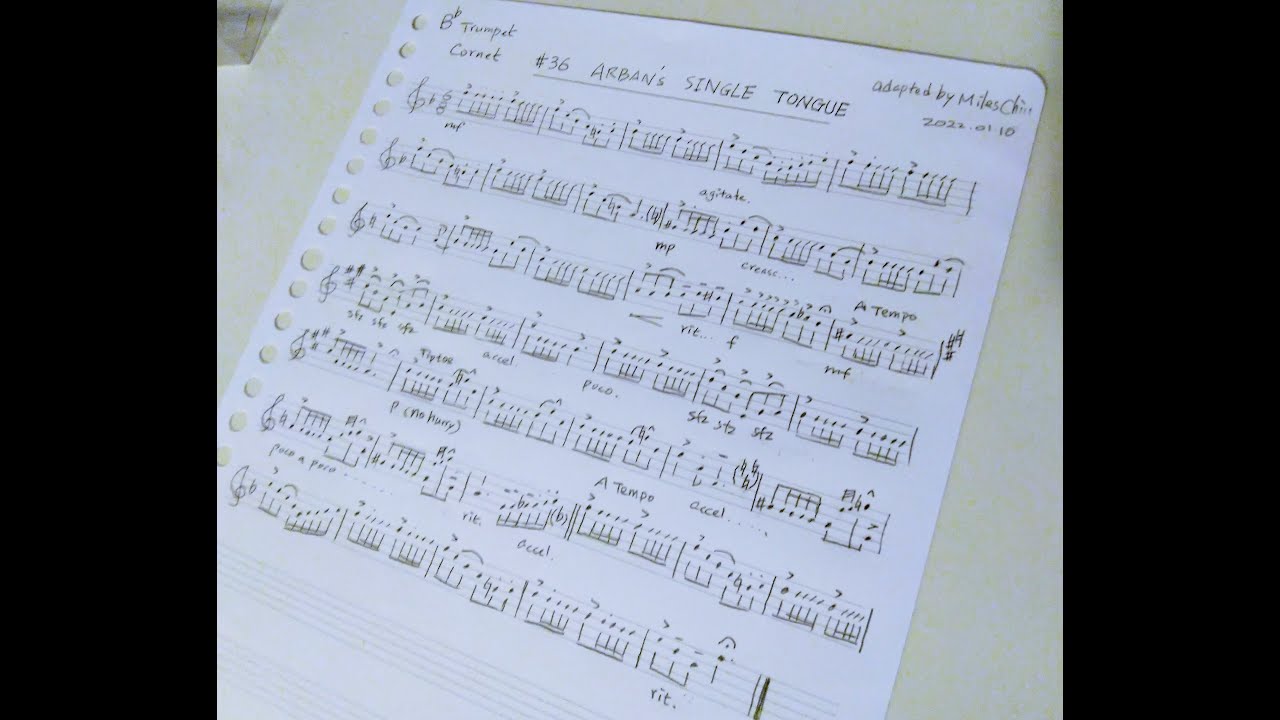 Bb Trumpet
Cornet
#36 ARBAN'S SINGLE TONGUE
adapted by Miles
2022.01.10
mf
agitate.
mp cresc...
A TEMPO
rit... f mf
sfz sfz sfz accel. poco. sfz sfz sfz
Tiptoe
P (no hurry) accel.....
poco a poco......
A TEMPO
rit. accel.
rit.